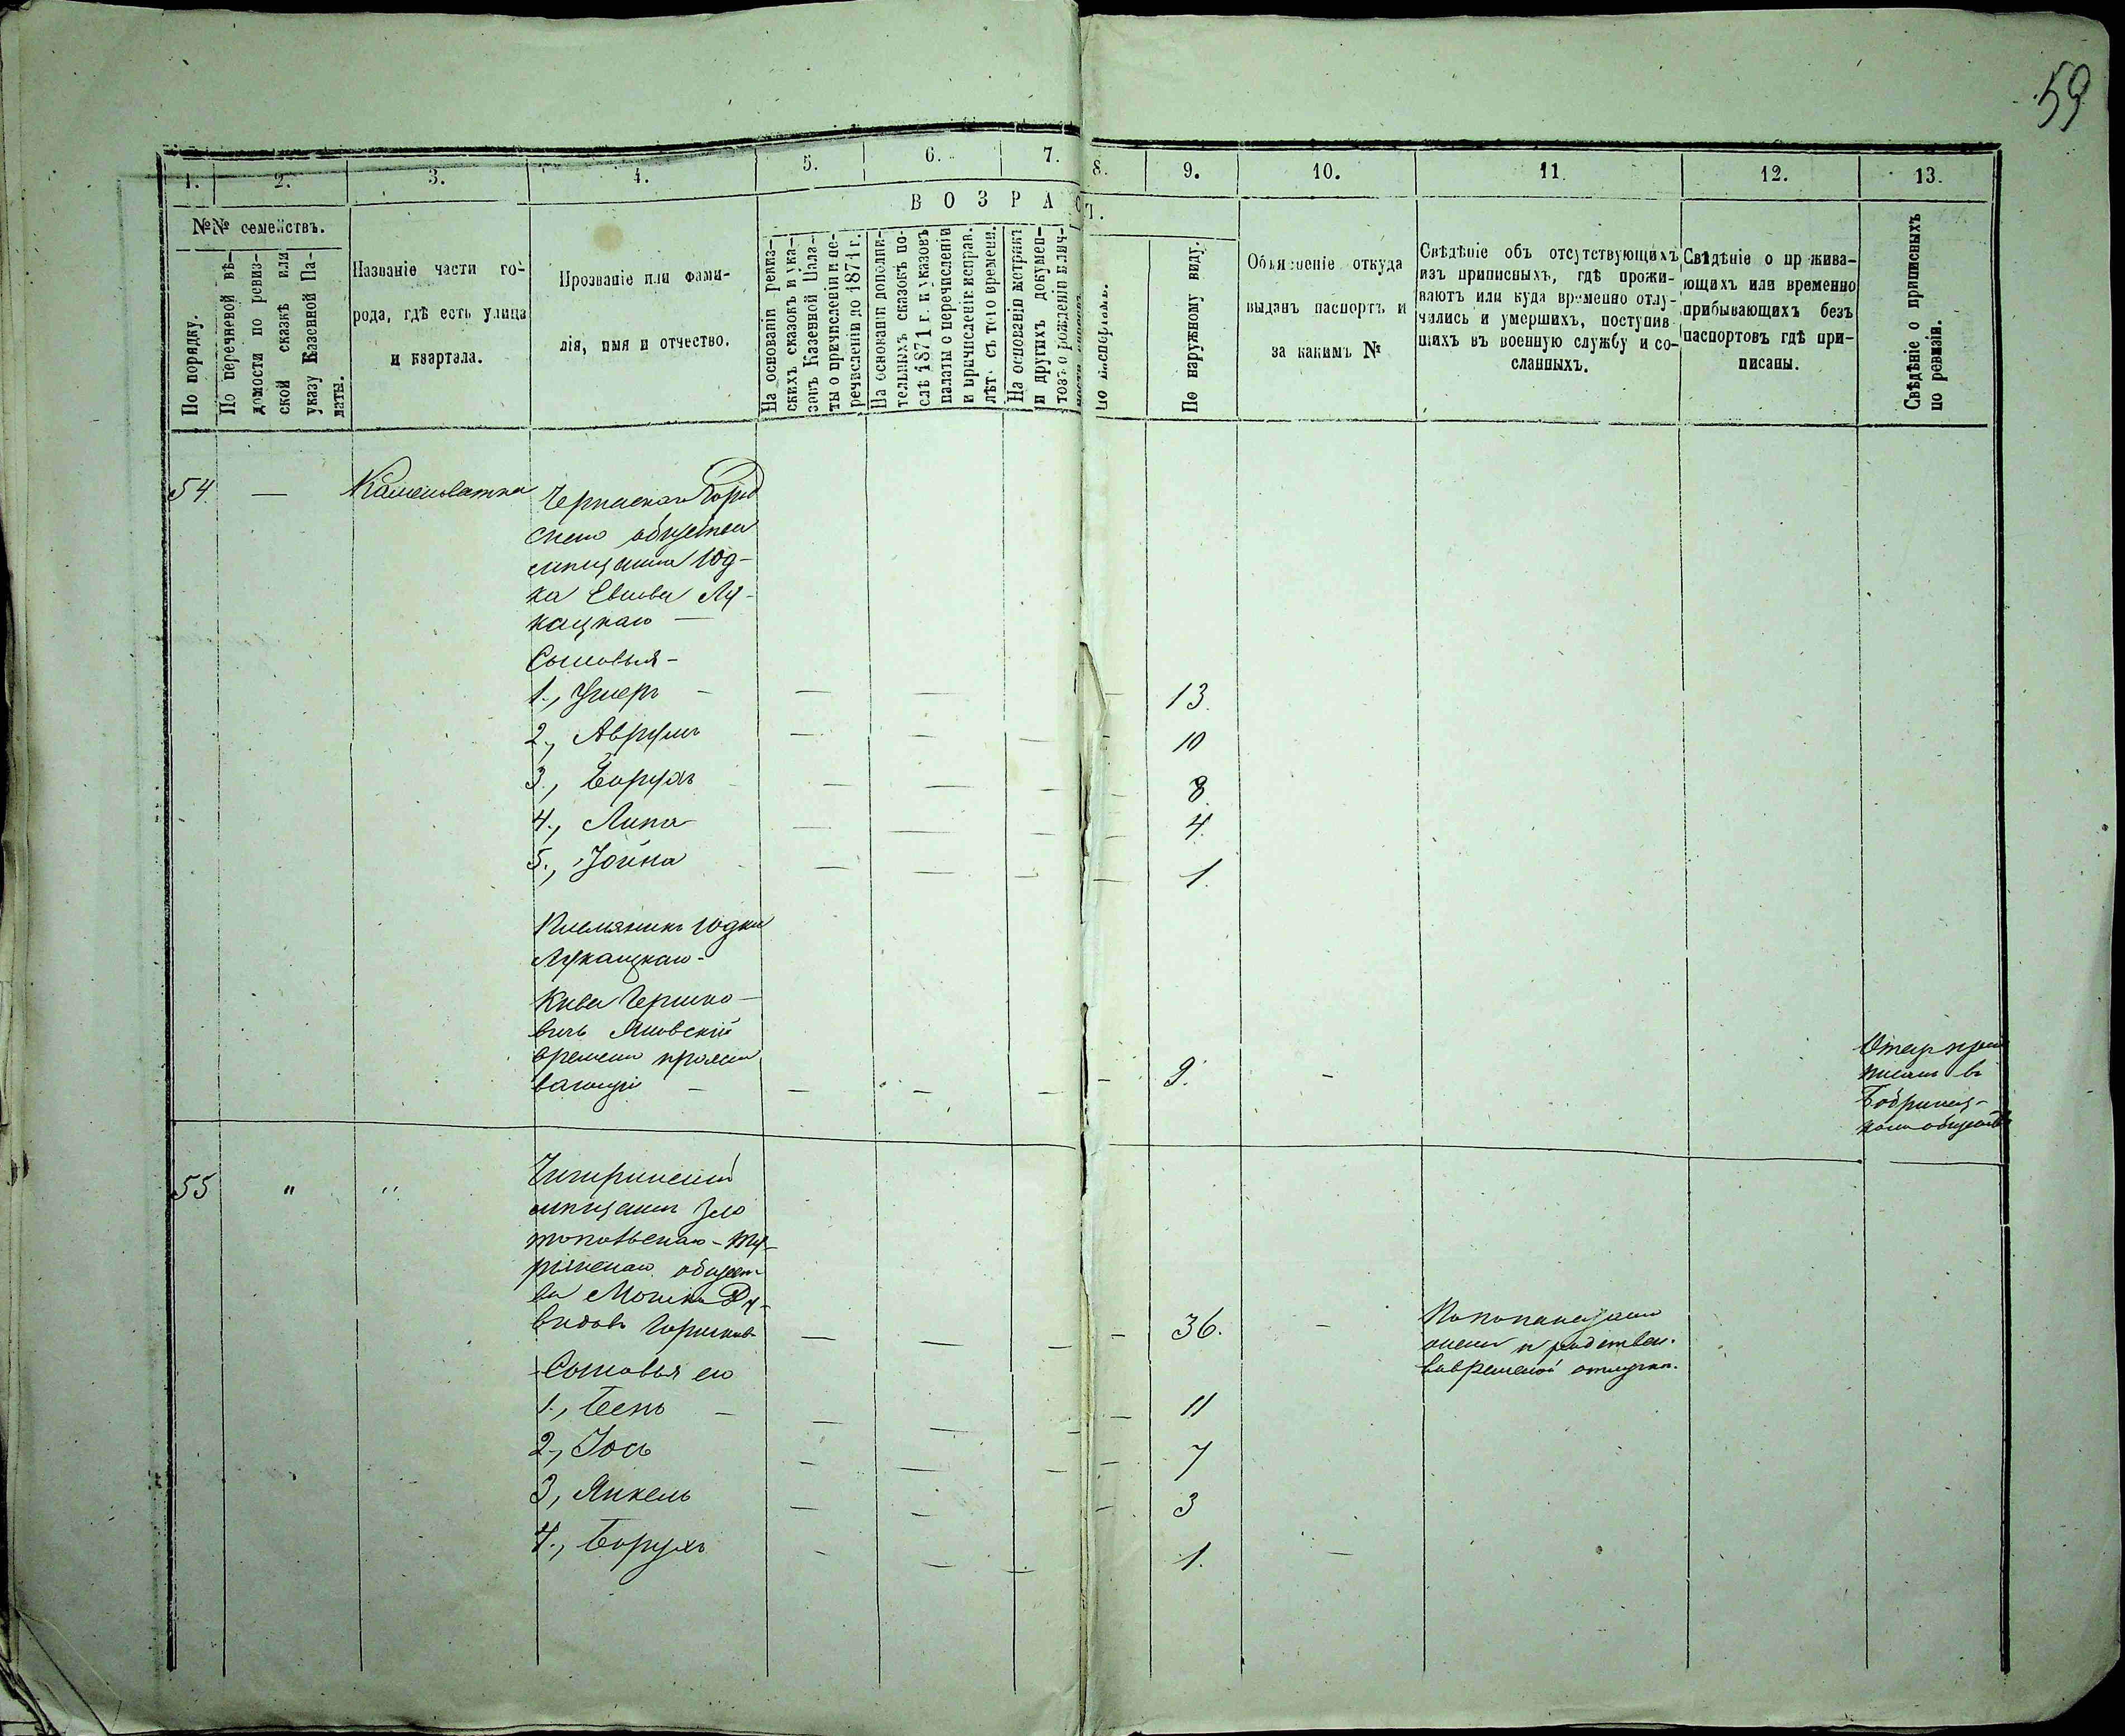 59
1. 2. 3. 4. 5. 6. 7. 8. 9. 10. 11. 12. 13.
№№ семействъ.
По порядку.
По перечневой вѣ-
домости по ревиз-
ской сказкѣ или
указу Казенной Па-
латы.
Названіе части го-
рода, гдѣ есть улица
и квартала.
Прозваніе или фами-
лія, имя и отчество.
ВОЗРАСТ.
На основаніи ревиз-
скихъ сказокъ и ука-
зовъ Казенной Пала-
ты о причисленіи и пе-
речисленіи до 1874 г.
На основаніи дополни-
тельныхъ сказокъ по-
слѣ 1874 г. и указовъ
палаты о перечисленіи
и причисленіи исправ.
лѣт. съ того времени.
На основаніи метрикъ
и другихъ докумен-
товъ о рожденіи и лич-
По наружному виду.
Объясненіе откуда
выданъ паспортъ и
за какимъ №
Свѣдѣніе объ отсутствующихъ
изъ приписныхъ, гдѣ прожи-
ваютъ или куда временно отлу-
чились и умершихъ, поступив
шихъ въ военную службу и со-
сланныхъ.
Свѣдѣніе о прожива-
ющихъ или временно
прибывающихъ безъ
паспортовъ гдѣ при-
писаны.
Свѣдѣніе о приписныхъ
по ревизіи.
54 — Каменоватка
скаго общества
мещанина Юд-
ка Лу-
кацкаго —
Сыновья —
1., Ушеръ — 13.
2., Аврумъ 10
3., Борухъ 8.
4., Липа 4.
5., Іойна 1.
Племяникъ Юдки
Лукацкаго —
Кива Гершко-
вичъ Яновскій
временно прожи
вающій — 9. —
Отецъ при
писанъ въ
Бобринец-
комъ обществѣ
55 " "
Чигиринскій
мещанинъ Зло
топольскаго - Ту-
рійскаго общест
ва Мошко Ду-
видовъ 36. —
Сыновья его
1., Бень — 11
2., Іось 7
3, Янкель 3
4., Борухъ 1. —